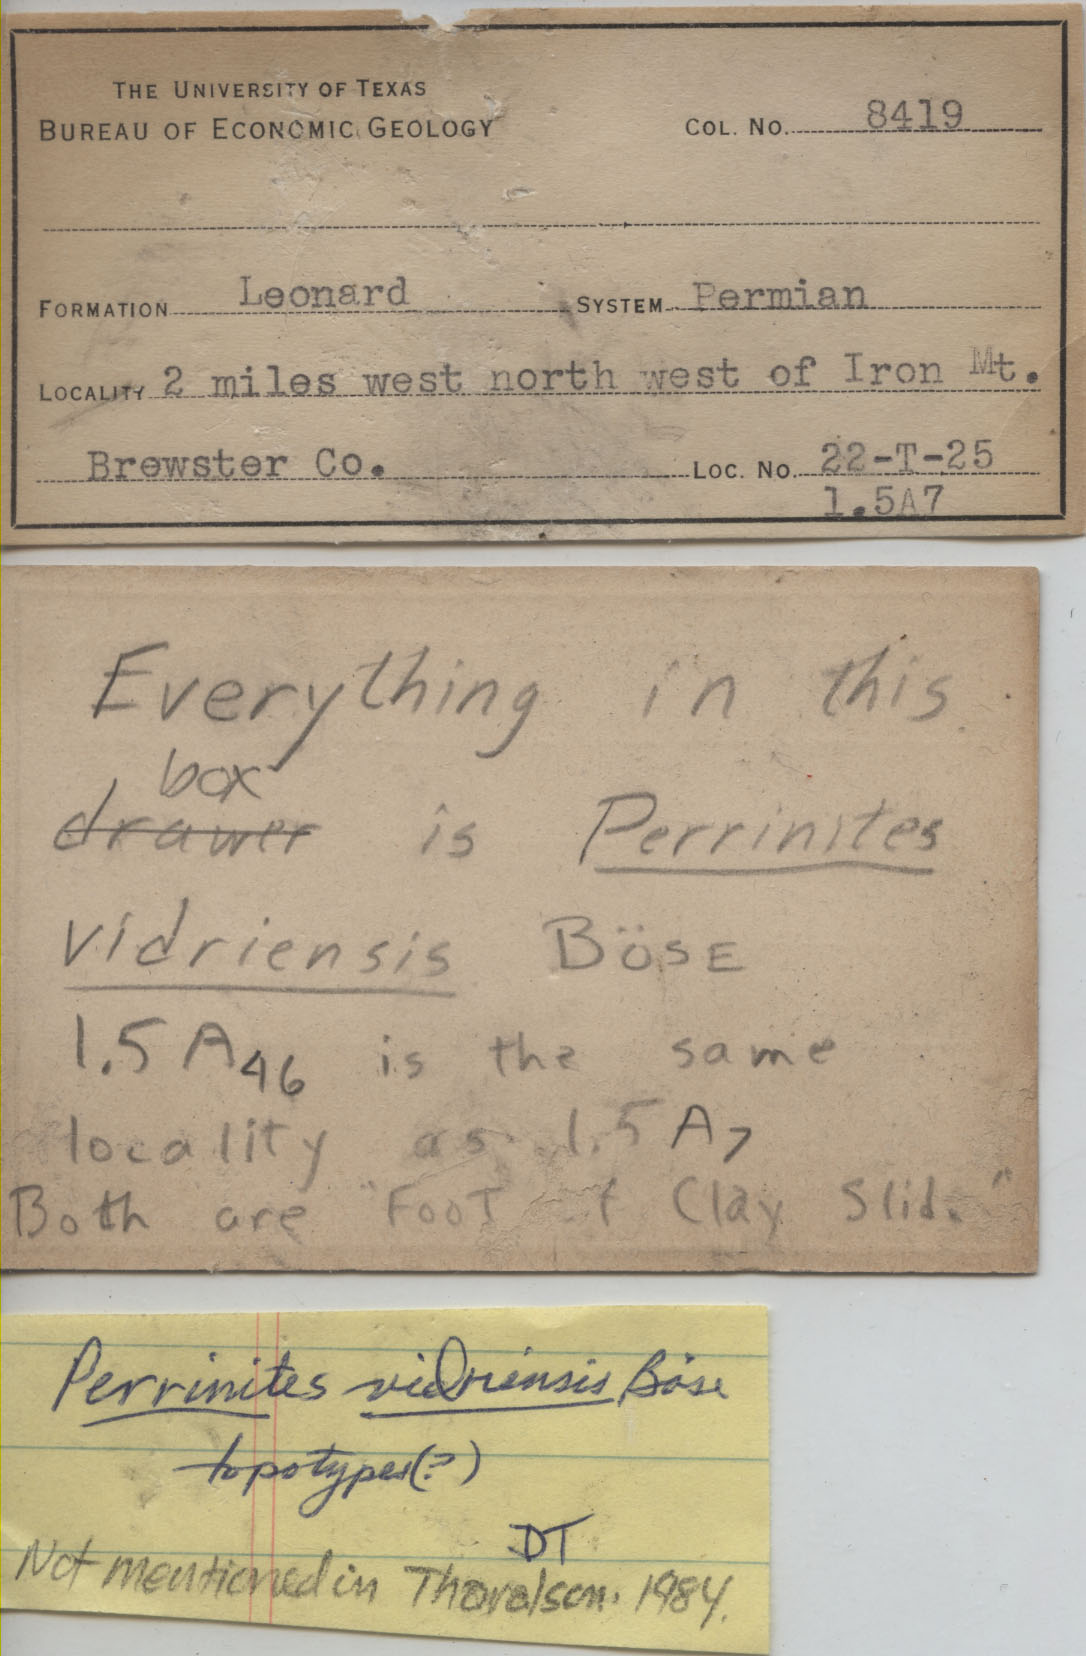 THE UNIVERSITY OF TEXAS
BUREAU OF ECONOMIC GEOLOGY
COL. NO. 8419
FORMATION Leonard SYSTEM Permian
LOCALITY 2 miles west north west of Iron Mt.
Brewster Co. LOC. NO. 22-T-25
1.5A7
Everything in this
box
drawer is Perrinites
vidriensis BÖSE
1.5 A46 is the same
locality as 1.5 A7
Both are "Foot Clay Slide"
Perrinites vidriensis Böse
topotypes(?)
DT
Not mentioned in Thoralson. 1984.